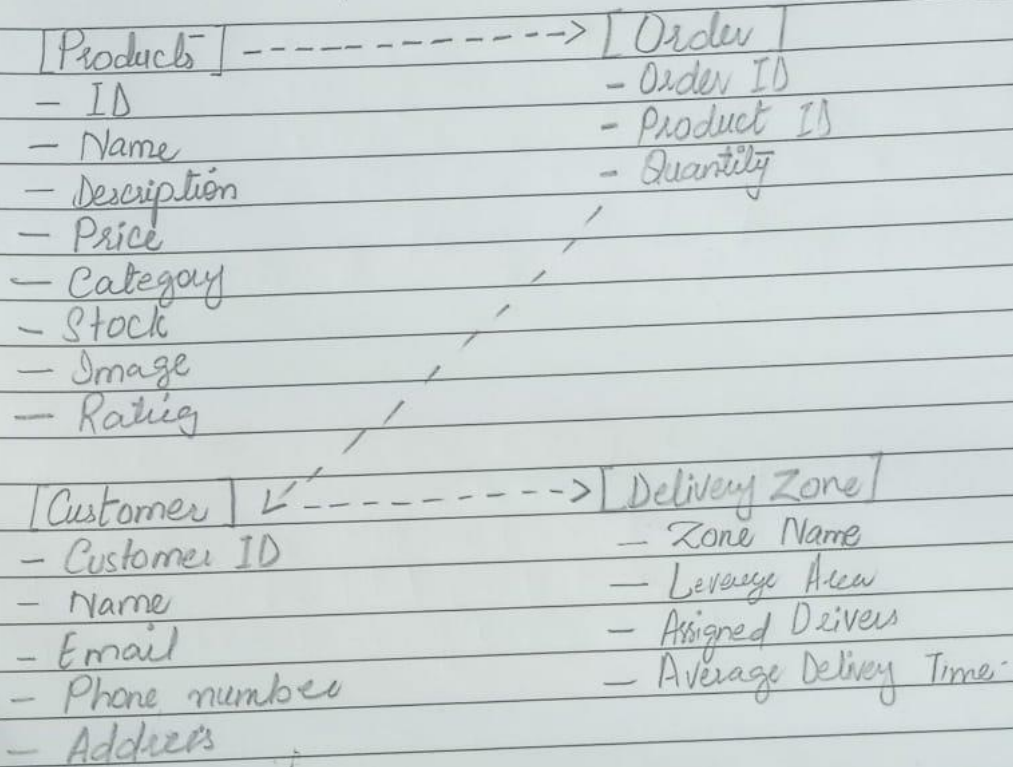 [Products] ------------> [Order]
- ID
- Name
- Description
- Price
- Category
- Stock
- Image
- Rating
- Order ID
- Product ID
- Quantity
[Customer] <---------> [Delivery Zone]
- Customer ID
- Name
- Email
- Phone number
- Address
- Zone Name
- Area
- Assigned Drivers
- Average Delivey Time